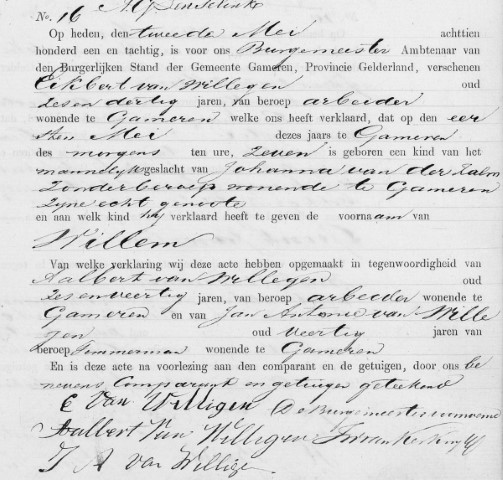 No. 16
Op heden, den tweede Mei achttien
honderd een en tachtig, is voor ons Burgemeester Ambtenaar van
den Burgerlijken Stand der Gemeente Gameren, Provincie Gelderland, verschenen
Eikbert van Willegen oud
zes en dertig jaren, van beroep arbeider
wonende te Gameren welke ons heeft verklaard, dat op den eer
sten Mei dezes jaars te Gameren
des morgens ten ure, zeven is geboren een kind van het
mannelijk geslacht van Johanna van der Zalm
zonder beroep wonende te Gameren
zyne echt genoote
en aan welk kind hij verklaard heeft te geven de voornaam van
Willem
Van welke verklaring wij deze acte hebben opgemaakt in tegenwoordigheid van
Aalbert van Willegen oud
zes en veertig jaren, van beroep arbeider wonende te
Gameren en van Jan Antonie van Wille
gen oud veertig jaren van
beroep Timmerman wonende te Gameren
En is deze acte na voorlezing aan den comparant en de getuigen, door ons be
nevens Comparant en getuigen geteekend
E Van Willigen De Burgemeester voornoemd
Aalbert Van Willigen
J A van Willigen